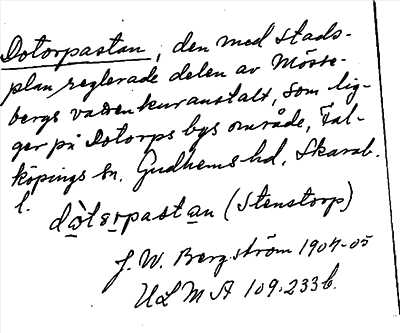 Dotorpastan, den med stads-
plan reglerade delen av Mösse-
bergs vattenkuranstalt, som lig-
ger på Dotorps bys område, Fal-
köpings sn. Gudhems hd, Skarab.
l.
dò̱te̱rpasta̱n (Stenstorp)
J. W. Bergström 1904-05
ULMA 109:233 b.